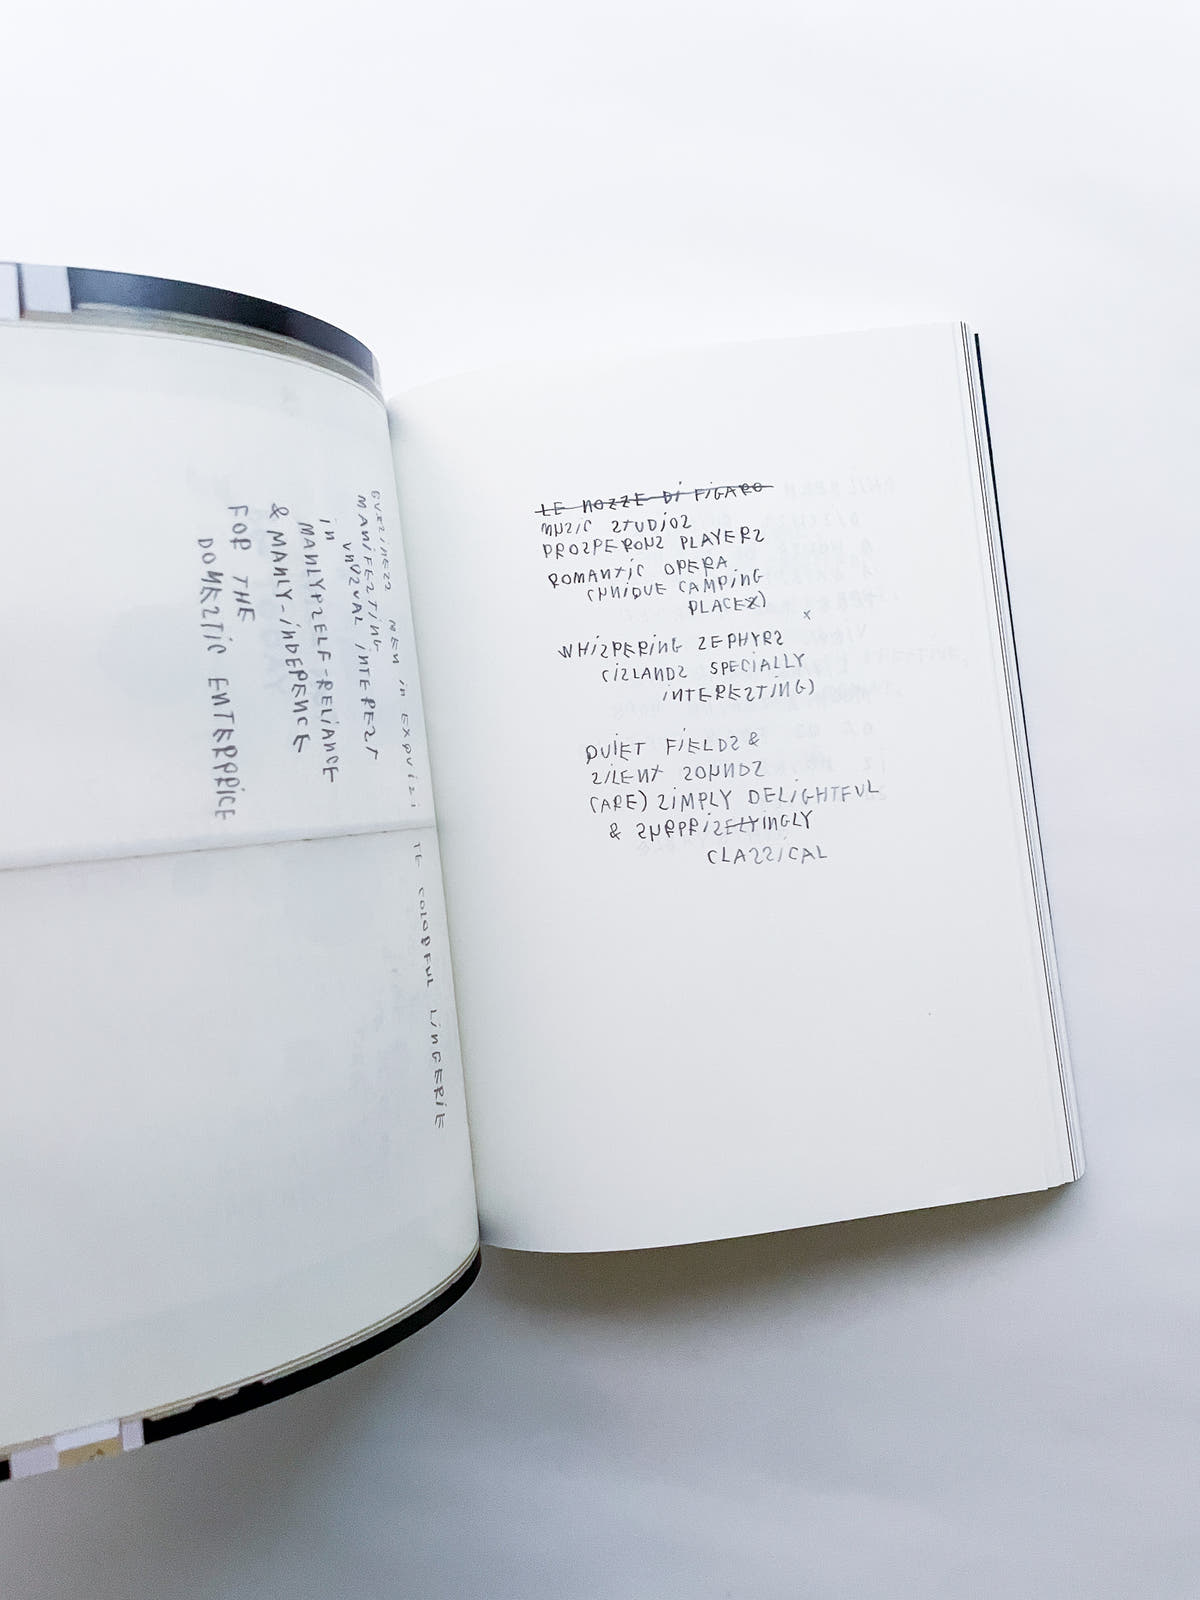 BUSINESS MEN IN EXQUISITE COLORFUL LINGERIE
MANIFESTING
UNUSUAL INTEREST
IN
MANLY SELF-RELIANCE
& MANLY-INDEPENCE
FOR THE
DOMESTIC ENTERPRICE
LE NOZZE DI FIGARO
MUSIC STUDIOS
PROSPEROUS PLAYERS
ROMANTIC OPERA
(UNIQUE CAMPING
PLACES)
x
WHISPERING ZEPHYRS
(ISLANDS SPECIALLY
INTERESTING)
QUIET FIELDS &
SILENT SOUNDS
(ARE) SIMPLY DELIGHTFUL
& SURPRISELYINGLY
CLASSICAL